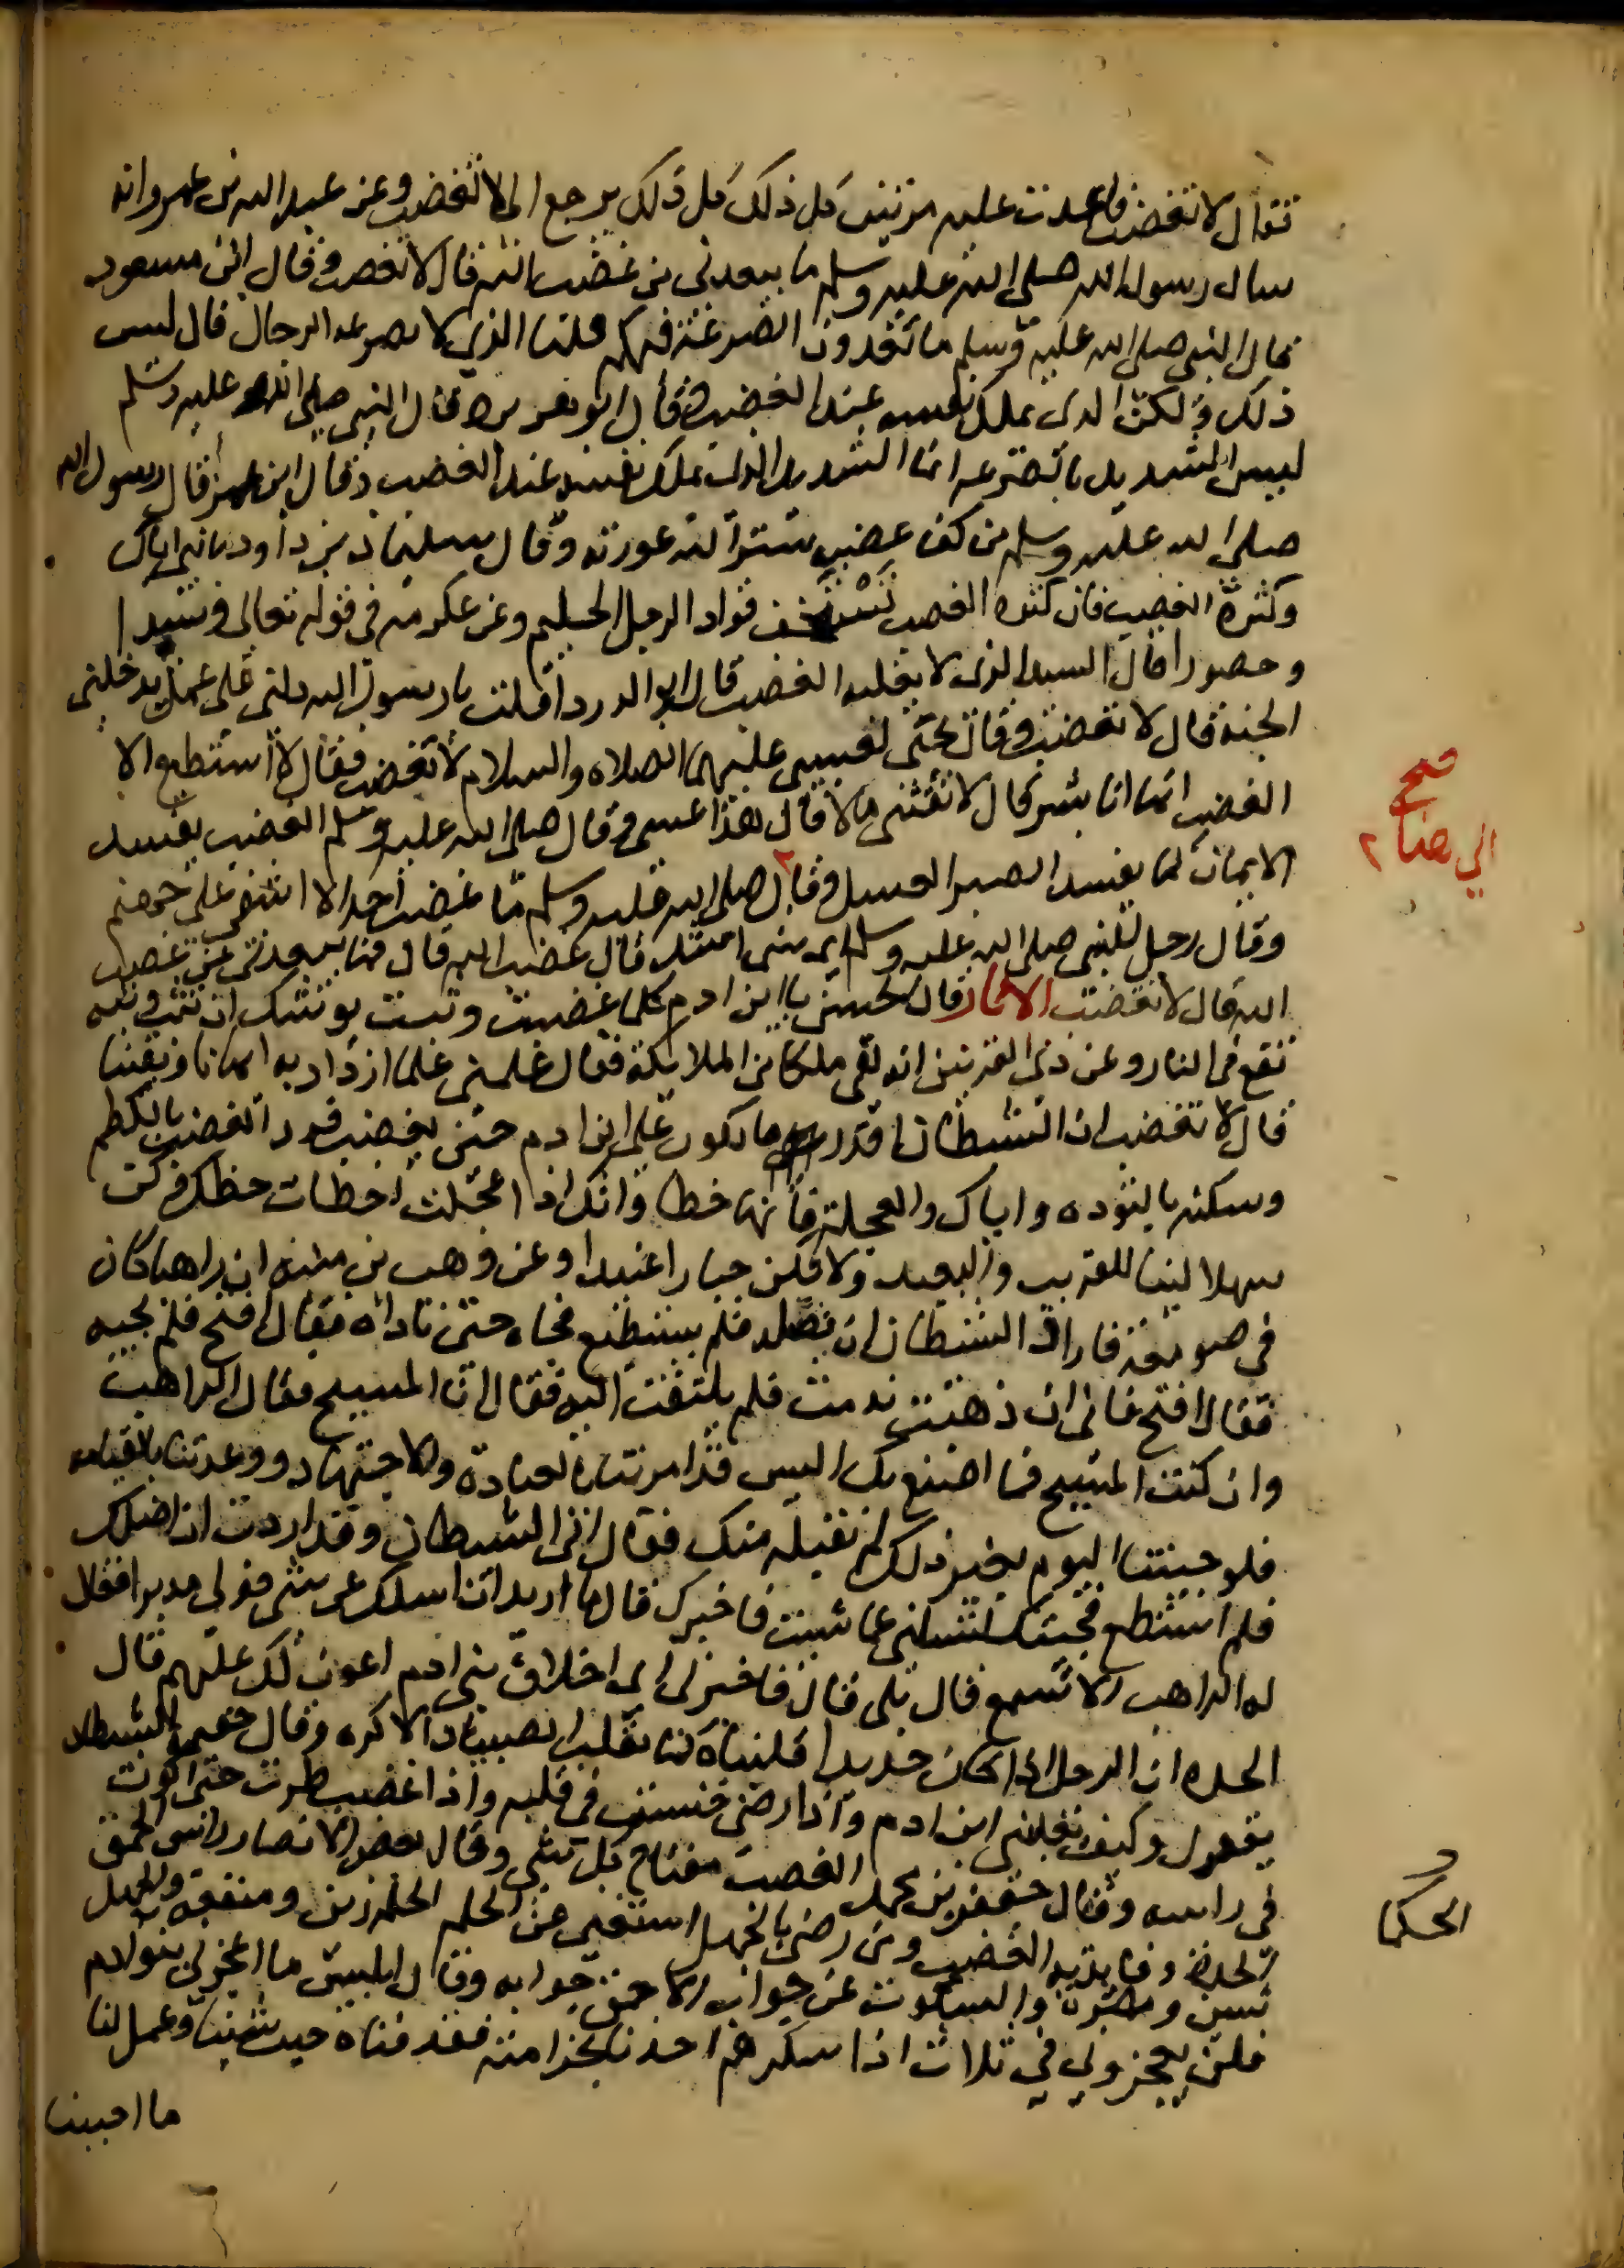 فقال لا تغضب فاعدت عليه مرتين كل ذلك كل ذلك يرجع الى لا تغضب وعن عبد الله بن عمرو انه
سال رسول الله صلى الله عليه وسلم ما يبعدني من غضب الله قال لا تغضب وقال ابن مسعود
قال النبي صلى الله عليه وسلم ما تعدون الصرعة فيكم قلنا الذي لا تصرعه الرجال قال ليس
ذلك ولكن الذي يملك نفسه عند الغضب وقال ابو هريرة قال النبي صلى الله عليه وسلم
ليس الشديد بالصرعه انما الشديد الذي يملك نفسه عند الغضب وقال ابن عمر قال رسول الله
صلى الله عليه وسلم من كف غضبه ستر الله عورته وقال سليمان بن داود يا بني اياك
وكثرة الغضب فان كثره الغضب تستخف فواد الرجل الحليم وعن عكرمه في قوله تعالى وسيدا
وحصورا قال السيد الذي لا يغلبه الغضب قال ابو الدردا قلت يا رسول الله دلني على عمل يدخلني
الجنه قال لا تغضب وقال يحيى لعيسى عليهما الصلاه والسلام لا تغضب فقال لا استطيع الا
الغضب انما انا بشر قال لا تقتني مالا قال هذا عسى وقال صلى الله عليه وسلم الغضب يفسد
الايمان كما يفسد الصبر العسل وقال صلى الله عليه وسلم ما غضب احد الا اشفى على جهنم
وقال رجل للنبي صلى الله عليه وسلم اي شي اشد قال غضب الله قال فما يبعدني عن غضب
الله قال لا تغضب الاثار قال الحسن يا ابن ادم كلما غضبت وثبت يوشك ان تثب وثبه
تقع في النار وعن ذي القرنين انه لقي ملكا من الملائكة فقال علمني علما ازداد به ايمانا ويقينا
قال لا تغضب ان الشيطان اقدر ما يكون على ابن ادم حين يغضب فرد الغضب بالكظم
وسكنه بالتوده واياك والعجلة فانها خطا وانك اذا عجلت اخطات حظك وكن
سهلا لينا للقريب والبعيد ولا تكن جبارا عنيدا وعن وهب بن منبه ان راهبا كان
في صومعته فاراد الشيطان ان يضله فلم يستطع فجاه حتى ناداه فقال افتح فلم يجبه
فقال افتح فاني ان ذهبت ندمت فلم يلتفت اليه فقال انا المسيح فقال الراهب
وان كنت المسيح فما اصنع بك اليس قد امرتنا بالعبادة والاجتهاد ووعدتنا بالقيامه
فلو جيتنا اليوم بغير ذلك لم نقبله منك فقال اني الشيطان وقد اردت ان اضلك
فلم استطع فجيتك لتسالني عما شيت فاخبرك قال ما اريد ان اسلك عن شي فولى مدبرا فقال
له الراهب الا تسمع قال بلى قال فاخبرني اي اخلاق بني ادم اعون لك عليهم قال
الحده ان الرجل اذا كان حديدا قلبناه كما يقلب الصبيان الاكره وقال خيثمة الشيطان
يقول وكيف يغلبني ابن ادم واذا رضى جيت في قلبه واذا غضب طرت حتى اكون
في راسه وقال جعفر بن محمد الغضب مفتاح كل شي وقال بعض الانصار راس الحمق
الحدة وقايده الغضب ومن رضى بالجهل استغنى عن الحلم الحلم زين ومنفعة والجهل
شين ومضرة والسكوت عن جواب الاحمق جوابه وقال ابليس ما اعجزني بنو ادم
فلن يعجزوني في ثلاث اذا سكر هم اخذنا بخزامته فقدناه حيث شينا وعمل لنا
ما احببنا
صح
الى هنا ٢
الحكما